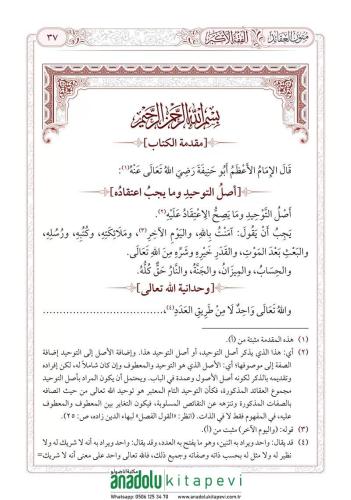 متون العقائد الفقه الأكبر ٣٧
بِسْمِ اللَّهِ الرَّحْمَنِ الرَّحِيمِ
[مقدمة الكتاب]
قَالَ الإِمَامُ الأَعْظَمُ أَبُو حَنِيفَةَ رَضِيَ اللهُ تَعَالَى عَنْهُ(١):
[أصلُ التوحيدِ وما يجبُ اعتقادُه]
أَصْلُ التَّوْحِيدِ وَمَا يَصِحُّ الِاعْتِقَادُ عَلَيْهِ(٢).
يَجِبُ أَنْ يَقُولَ: آمَنْتُ بِاللهِ، وَاليَوْمِ الآخِرِ(٣)، وَمَلَائِكَتِهِ، وَكُتُبِهِ، وَرُسُلِهِ،
وَالبَعْثِ بَعْدَ المَوْتِ، وَالقَدَرِ خَيْرِهِ وَشَرِّهِ مِنَ اللهِ تَعَالَى.
وَالحِسَابُ، وَالمِيزَانُ، وَالجَنَّةُ، وَالنَّارُ حَقٌّ كُلُّهُ.
[وحدانية الله تعالى]
وَاللهُ تَعَالَى وَاحِدٌ لَا مِنْ طَرِيقِ العَدَدِ(٤)، ..............................
(١) هذه المقدمة مثبتة من (أ).
(٢) أي: هذا الذي يذكر أصل التوحيد، أو أصل التوحيد هذا. وإضافة الأصل إلى التوحيد إضافة
الصفة إلى موصوفها؛ أي: الأصل الذي هو التوحيد والمعطوف وإن كان شاملاً له، لكن إفراده
وتقديمه بالذكر لكونه أصل الأصول وعمدة في الباب. ويحتمل أن يكون المراد بأصل التوحيد
مجموع العقائد المذكورة، فكأن التوحيد التام المعتبر هو توحيد الله تعالى من حيث اتصافه
بالصفات المذكورة وتنزهه عن النقائص المسلوبة، فيكون التغاير بين المعطوف والمعطوف
عليه، في المفهوم فقط لا في الذات. (انظر: «القول الفصل» لبهاء الدين زاده، ص: ٢٥).
(٣) قوله: (واليوم الآخر) مثبت من (أ).
(٤) قد يقال: واحد ويراد به اثنين، وهو ما يفتح به العدد، وقد يقال: واحد ويراد به أنه لا شريك له ولا
نظير له ولا مثل له بحسب ذاته وصفاته وجميع ذلك، فالله تعالى واحد على معنى أنه لا شريك=
anadolukitapevi
Whatsapp: 0506 125 34 70 www.anadolukitap.com